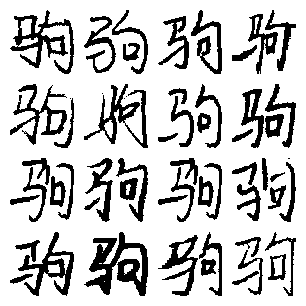 驹驹驹驹
驹驹驹驹
驹驹驹驹
驹驹驹驹